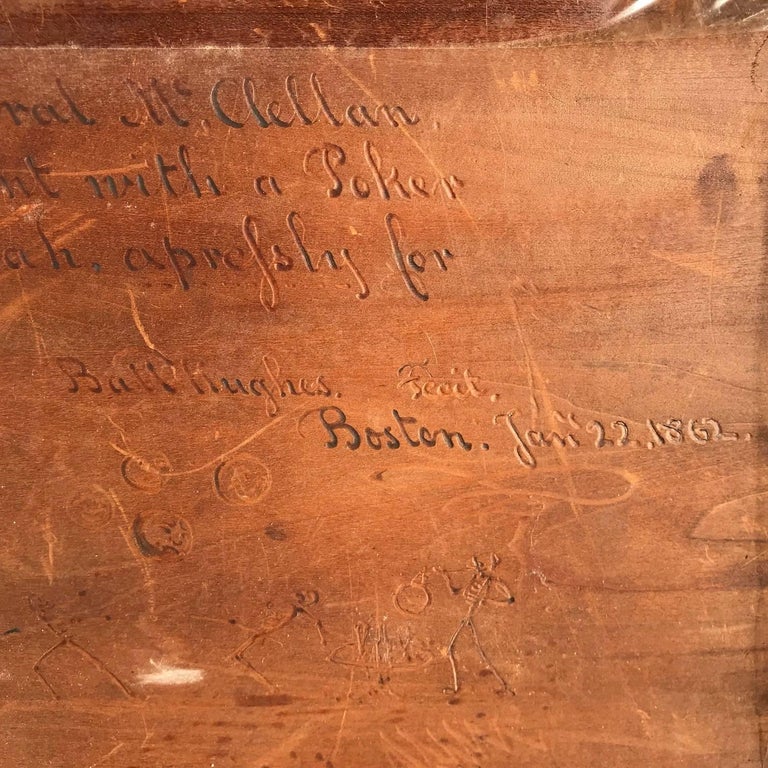 ral Mc. Clellan.
nt with a Poker
ah, apreſsly for
Ball Hughes. Fecit.
Boston. Jany 22. 1862.